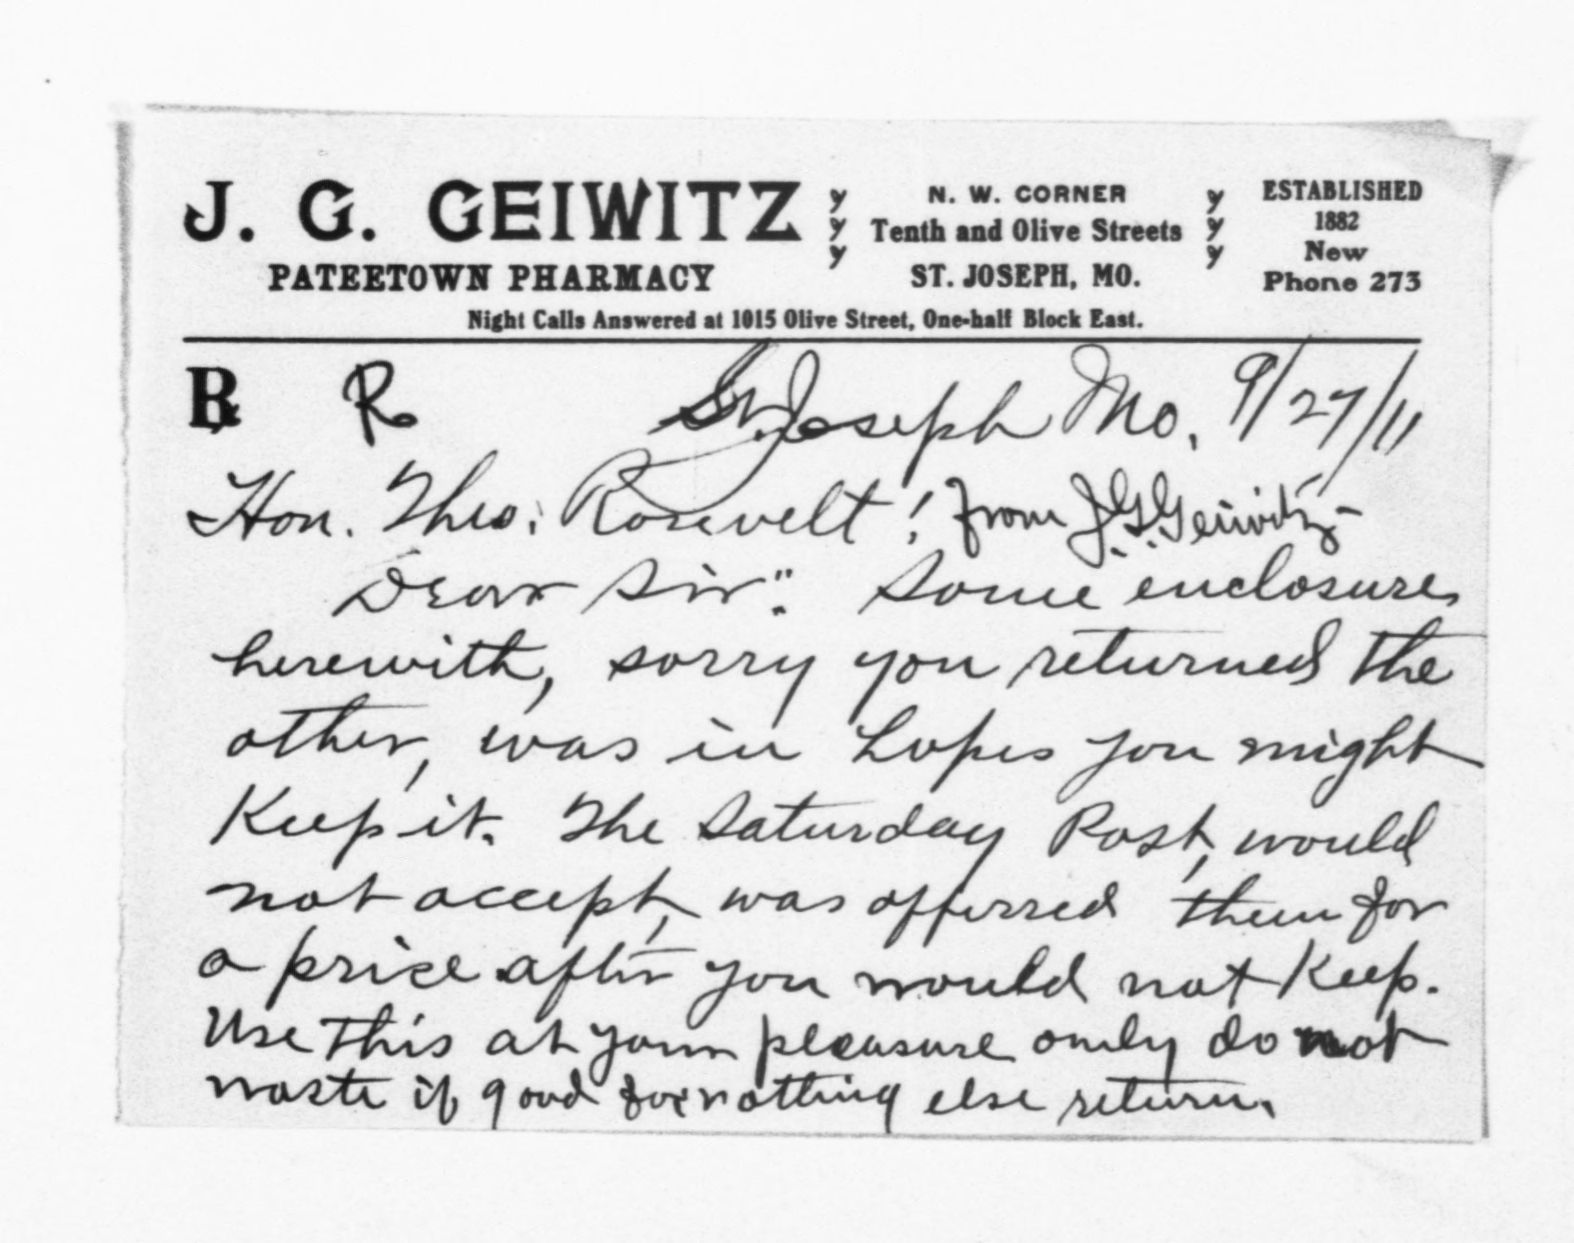 J. G. GEIWITZ
PATEETOWN PHARMACY
N. W. CORNER
Tenth and Olive Streets
ST. JOSEPH, MO.
ESTABLISHED
1882
New
Phone 273
Night Calls Answered at 1015 Olive Street, One-half Block East.
℞ R St. Joseph Mo, 9/27/11
Hon. Theo. Rosevelt! from J.G. Geiwitz-
Dear Sir": Some enclosure
herewith, sorry you returned the
other, was in hopes you might
Keep it. The Saturday Post, would
not accept, was offerred them for
a price after you would not Keep.
Use this at your pleasure only do not
waste if good for nothing else return.